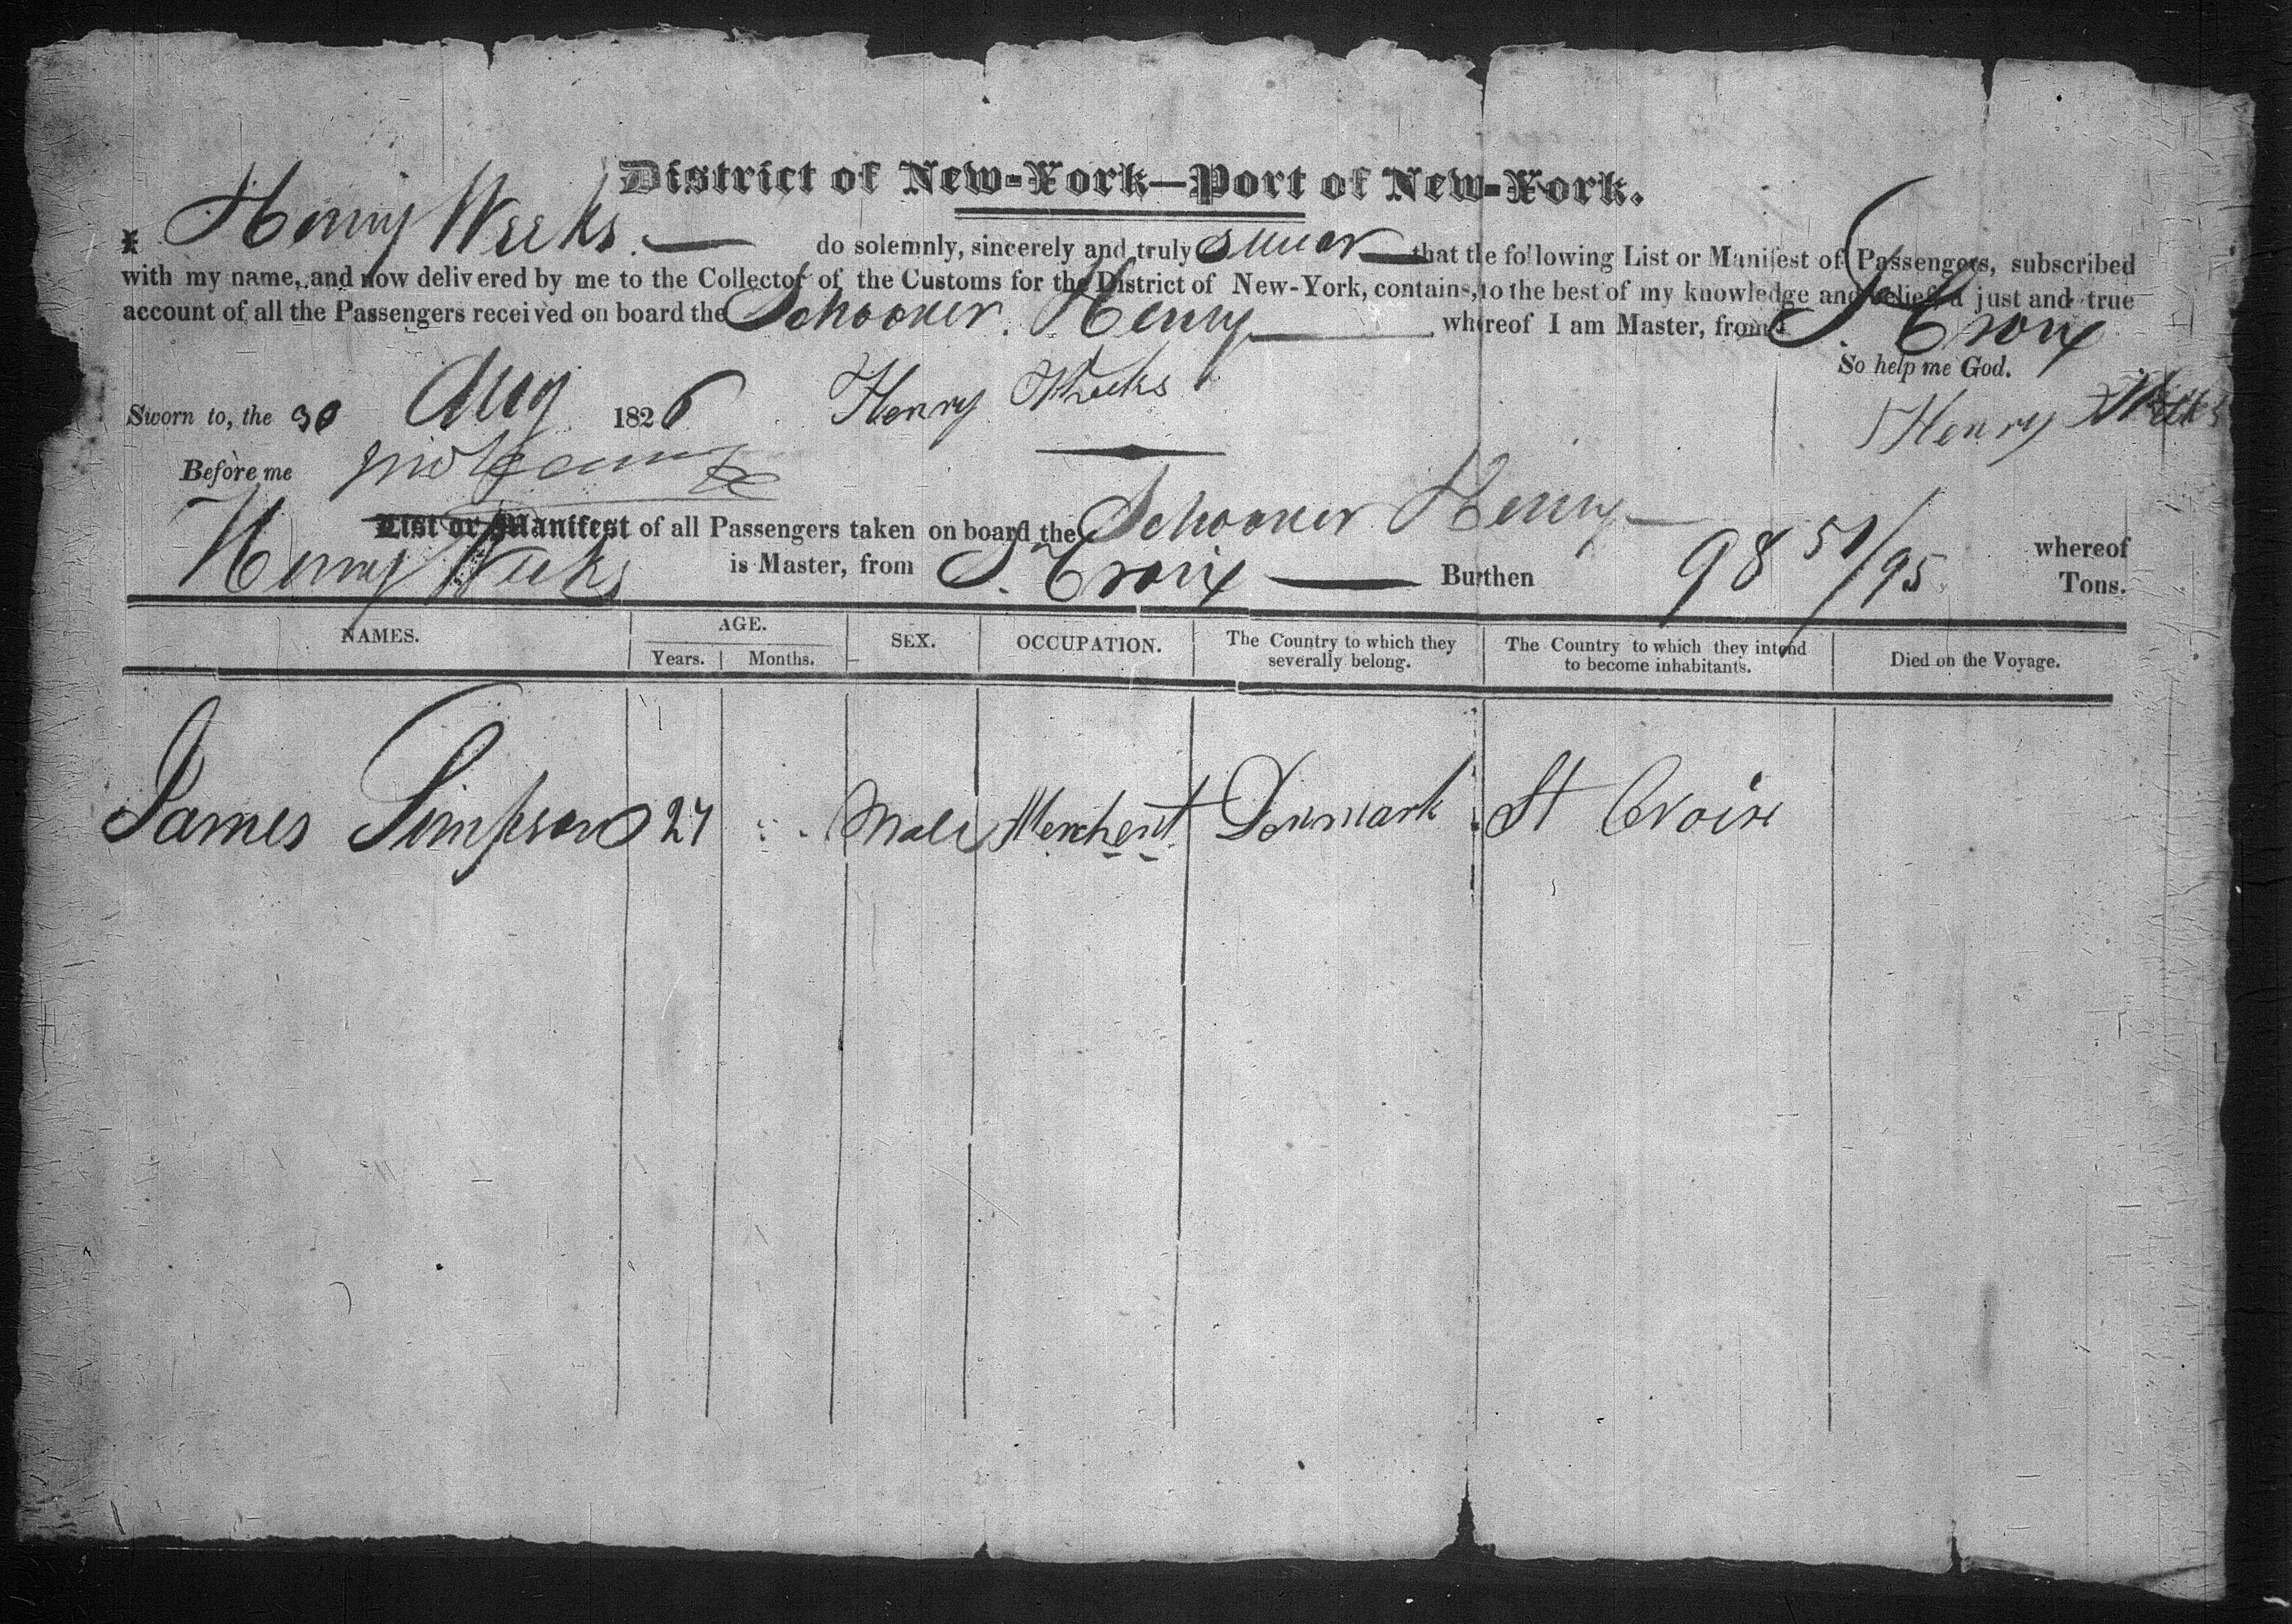 District of New-York—Port of New-York.
I Henry Weeks. — do solemnly, sincerely and truly swear that the following List or Manifest of Passengers, subscribed
with my name, and now delivered by me to the Collector of the Customs for the District of New-York, contains, to the best of my knowledge and belief, a just and true
account of all the Passengers received on board the Schooner Henry whereof I am Master, from St Croix
So help me God.
Sworn to, the 30 Aug 1826 Henry Weeks Henry Weeks
Before me
List or Manifest of all Passengers taken on board the Schooner Henry — whereof
Henry Weeks is Master, from St Croix — Burthen 98 51/95 Tons.
NAMES. AGE. SEX. OCCUPATION. The Country to which they severally belong. The Country to which they intend to become inhabitants. Died on the Voyage.
Years. Months.
James Simpson 27 Male Merchent Denmark St Croix